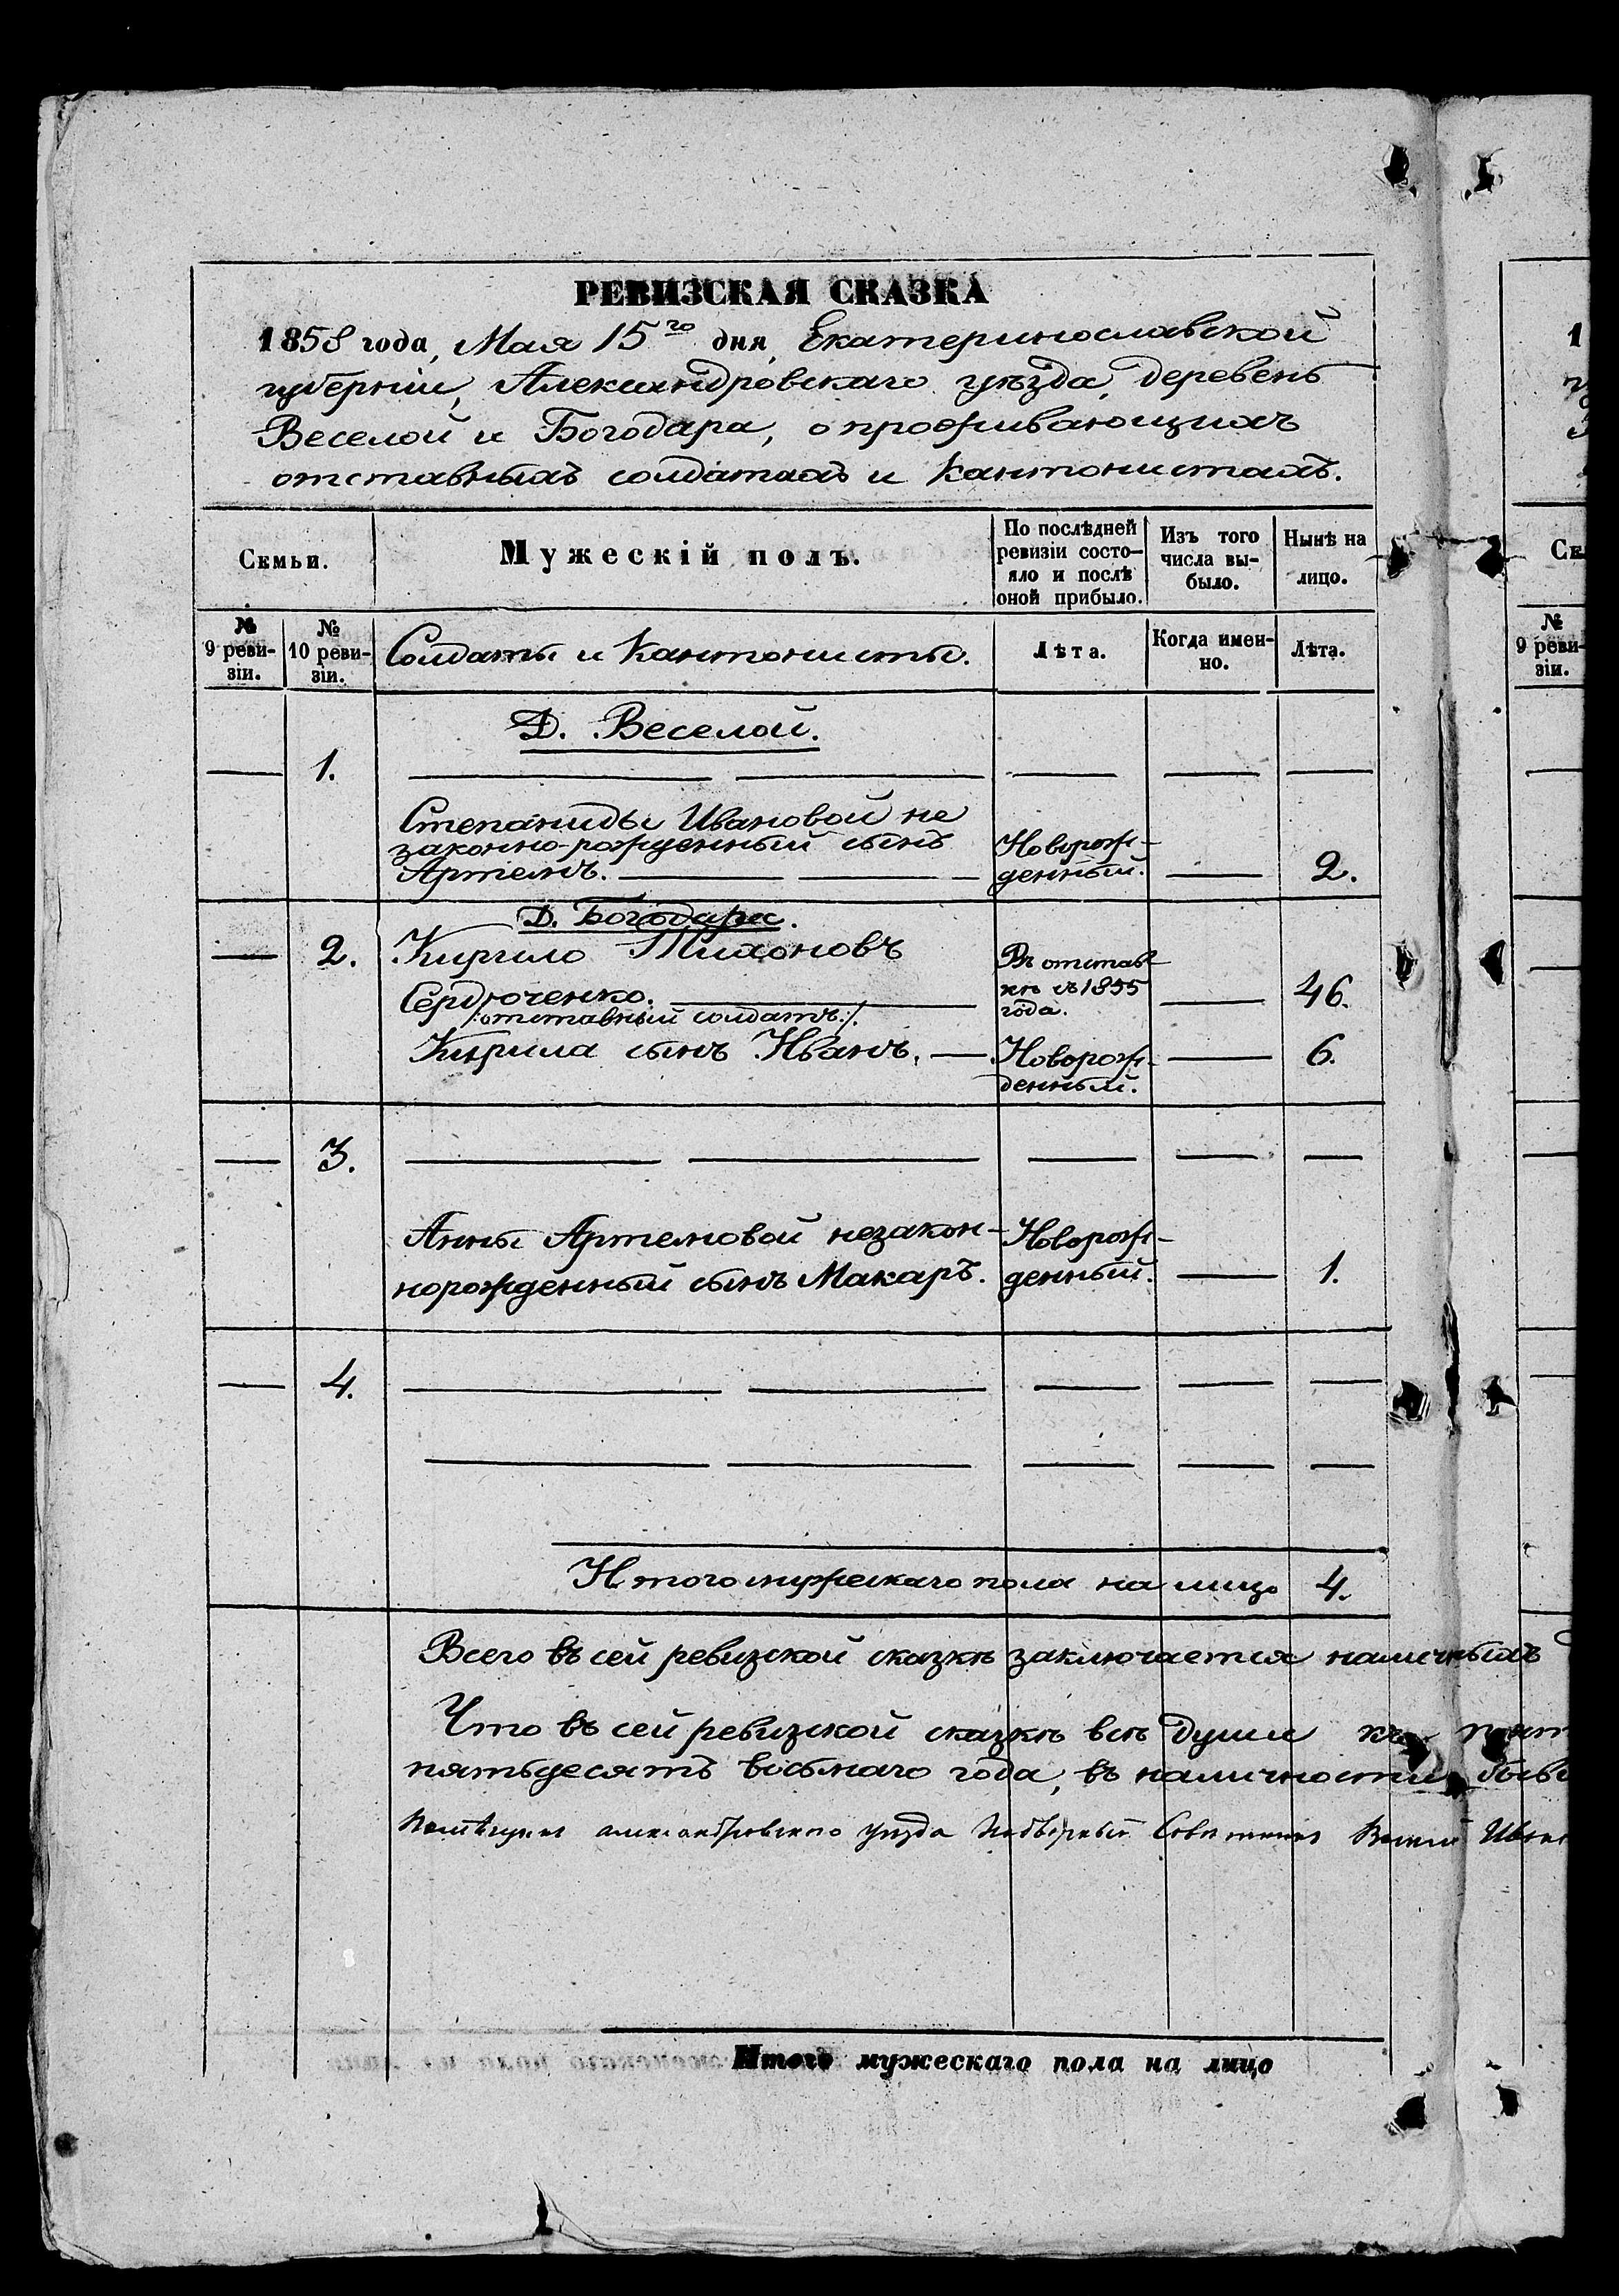 РЕВИЗСКАЯ СКАЗКА
1858 года, Мая 15го дня, Екатеринославской
губерніи, Александровскаго уѣзда, деревень
Веселой и Богодара, о проживающихъ
отставныхъ солдатахъ и кантонистахъ.
Семьи.
Мужескій полъ.
По послѣдней ревизіи состо-
яло и послѣ
оной прибыло.
Изъ того
числа вы-
было.
Нынѣ на
лицо.
№
9 реви-
зіи.
№
10 реви-
зіи.
Солдаты и кантонисты.
Лѣта.
Когда имен-
но.
Лѣта.
Д. Веселой.
1.
Степаниды Ивановой не
законно-рожденный сынъ
Артемъ.
Новорож-
денный.
2.
Д. Богодара.
2. Кирило Тихоновъ
Сердюченко.
/:отставный солдатъ:/.
Въ отстав-
кѣ съ 1855
года.
46.
Кирила сынъ Иванъ. Новорож-
денный.
6.
3.
Анны Артемовой незакон-
норожденный сынъ Макаръ.
Новорож-
денный.
1.
4.
Итого мужескаго пола на лицо 4.
Всего въ сей ревизской сказкѣ заключается наличныхъ
Что въ сей ревизской сказкѣ всѣ души къ
пятьдесятъ восьмаго года, въ наличности
Помѣщикъ александровского уезда Надворный Советникъ
Итого мужескаго пола на лицо
1
Се
№
9 реви-
зіи.